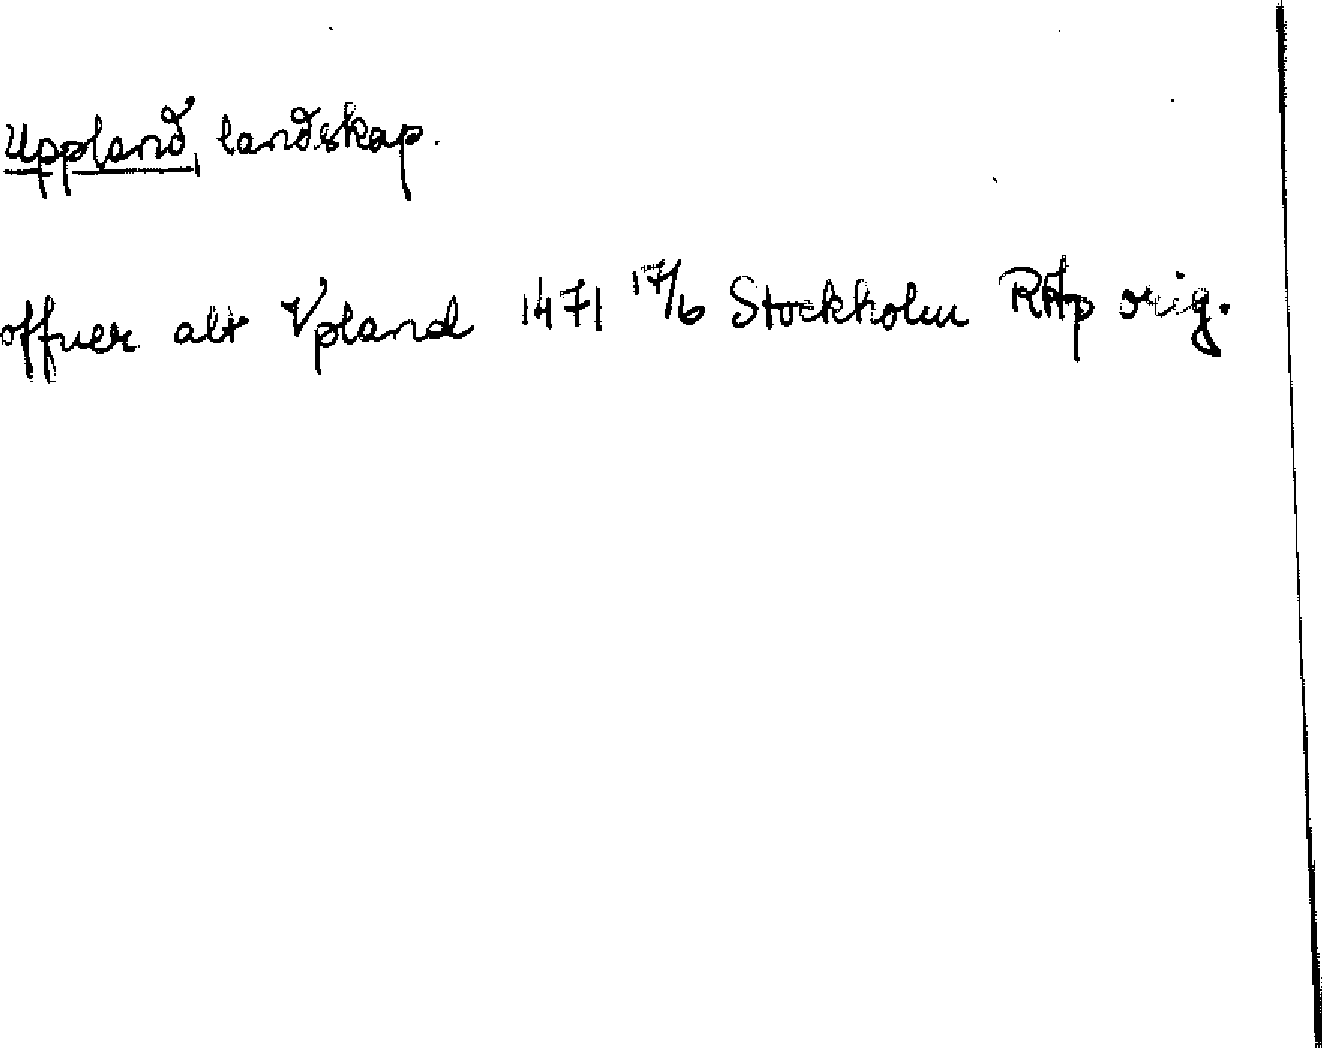 Uppland, landskap.
offuer alt Vpland 1471 17/6 Stockholm RAp orig.